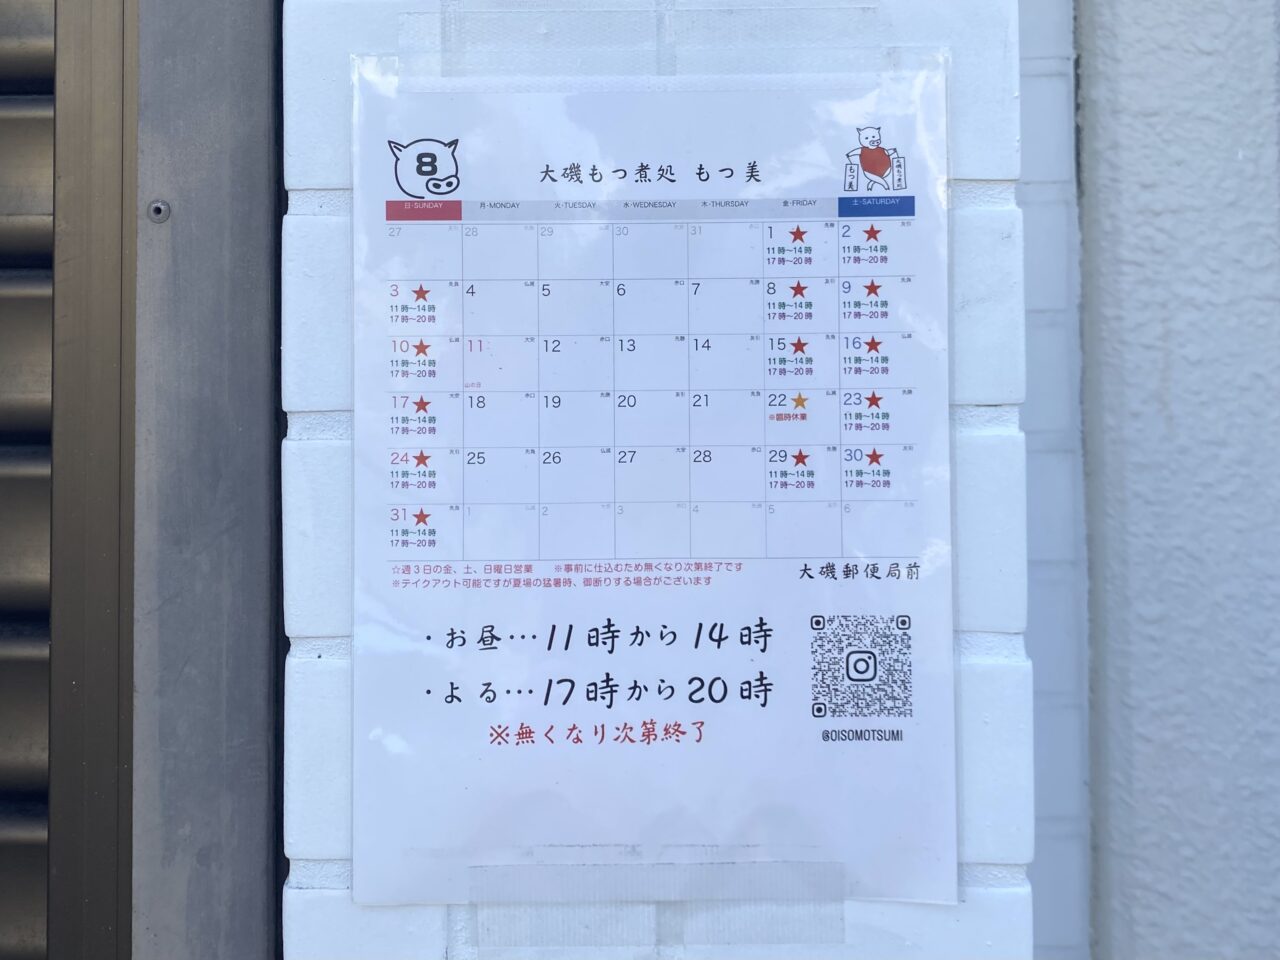 8
大磯もつ煮処 もつ美
もつ美
大磯もつ煮処
日・SUNDAY 月・MONDAY 火・TUESDAY 水・WEDNESDAY 木・THURSDAY 金・FRIDAY 土・SATURDAY
27 友引 28 29 仏滅 30 大安 31 赤口 1 ★ 先勝 2 ★ 友引
11時〜14時 11時〜14時
17時〜20時 17時〜20時
3 ★ 先負 4 仏滅 5 大安 6 赤口 7 先勝 8 ★ 友引 9 ★ 先負
11時〜14時 11時〜14時 11時〜14時
17時〜20時 17時〜20時 17時〜20時
10 ★ 仏滅 11 大安 12 赤口 13 先勝 14 友引 15 ★ 先負 16 ★ 仏滅
11時〜14時 11時〜14時 11時〜14時
17時〜20時 17時〜20時 17時〜20時
山の日
17 ★ 大安 18 赤口 19 先勝 20 友引 21 先負 22 ★ 仏滅 23 ★ 先勝
11時〜14時 ※臨時休業 11時〜14時
17時〜20時 17時〜20時
24 ★ 友引 25 先負 26 仏滅 27 大安 28 赤口 29 ★ 先勝 30 ★ 友引
11時〜14時 11時〜14時 11時〜14時
17時〜20時 17時〜20時 17時〜20時
31 ★ 先負 1 仏滅 2 大安 3 赤口 4 先勝 5 友引 6 先負
11時〜14時
17時〜20時
☆週3日の金、土、日曜日営業 ※事前に仕込むため無くなり次第終了です
※テイクアウト可能ですが夏場の猛暑時、御断りする場合がございます
大磯郵便局前
・お昼…11時から14時
・よる…17時から20時
※無くなり次第終了
@OISOMOTSUMI